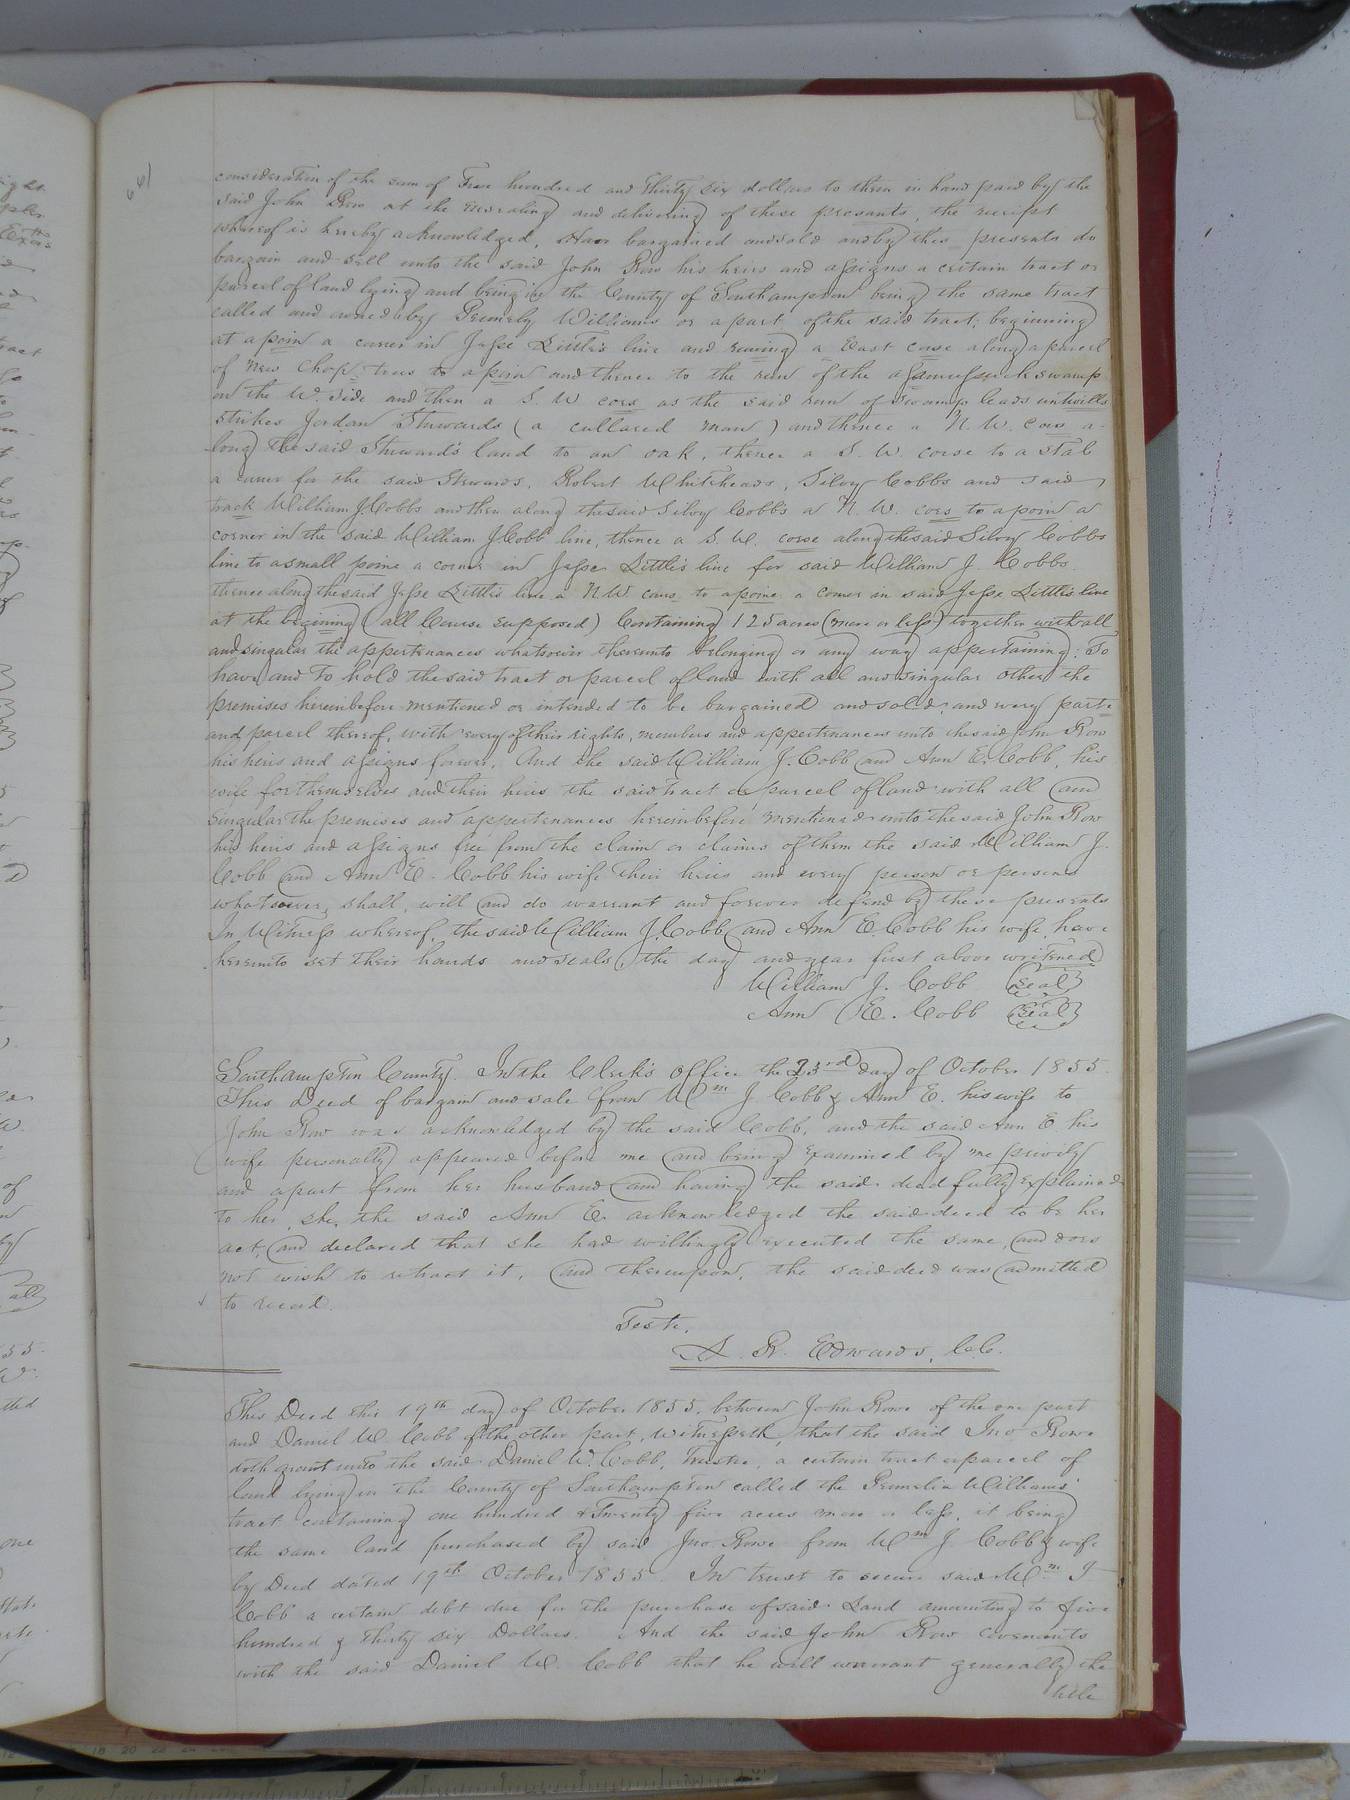 661
consideration of the sum of Five hundred and Thirty six dollars to them in hand paid by the
said John Row at the ensealing and delivering of these presents, the receipt
whereof is hereby acknowledged, Have bargained and sold and by this presents do
bargain and sell unto the said John Row his heirs and assigns a certain tract or
parcel of land lying and being in the County of Southampton being the same tract
called and owned by Williams or a part of the said tract; beginning
at a poin a corner in Jesse Little's line and runing a East corse along a parcel
of new Chop trees to a poin and thence to the run of the swamp
on the W. side and then a S. W cors as the said run of swamp leads untill
strikes Jordan Stewards (a collared man) and thence a N. W. cors a-
long the said Steward's land to an oak, thence a S. W. corse to a stab
a corner for the said Stewards, Robert Whiteheads, Silvy Cobbs and said
track William J. Cobbs and then along the said Silvy Cobbs a N. W. cors to a poin a
corner in the said William J Cobb line, thence a S. W. corse along the said Silvy Cobbs
line to a small poine a corner in Jesse Little's line for said William J. Cobbs
thence along the said Jesse Little's line a N W cors to a poine a corner in said Jesse Little's line
at the begining (all Course supposed) Containing 125 acres (more or less) together with all
and singular the appertenances whatsoever thereunto belonging or any way appertaining: To
have and To hold the said tract or parcel of land with all and singular other the
premises hereinbefore mentioned or intended to be bargained and sold, and very part
and parcel thereof, with every of their rights, members and appertenances unto the said John Row
his heirs and assigns forever. And the said William J. Cobb and Ann E. Cobb, his
wife for themselves and their heirs the said tract or parcel of land with all and
singular the premises and appertenances hereinbefore mentioned unto the said John Row
his heirs and assigns free from the claim or claims of them the said William J.
Cobb and Ann E. Cobb his wife their heirs and every person or persons
whatsoever, shall, will and do warrant and forever defend by these presents
In Witness whereof, the said William J. Cobb and Ann E. Cobb his wife, have
hereunto set their hands and seals, the day and year first above writened
William J. Cobb (Seal)
Ann E. Cobb (Seal)
Southampton County. In the Clerk's office the 23rd day of October 1855.
This Deed of bargain and sale from Wm J. Cobb & Ann E. his wife to
John Row was acknowledged by the said Cobb, and the said Ann E his
wife personally appeared before me and being examined by me privily
and apart from her husband and having the said deed fully explained
to her, she, the said Ann E. acknowledged the said deed to be her
act, and declared that she had willingly executed the same, and does
not wish to retract it, and thereupon, the said deed was admitted
to record.
Teste,
L. R. Edwards, C.C.
This Deed this 19th day of October 1855, between John Rowe of the one part
and Daniel W. Cobb of the other part, Witnesseth, that the said Jno Rowe
doth grant unto the said Daniel W. Cobb, Trustee, a certain tract or parcel of
land lying in the County of Southampton called the Williams'
tract containing one hundred & Twenty five acres more or less, it being
the same land purchased by said Jno. Rowe from Wm J. Cobb & wife
by Deed dated 19th October 1855. In trust to secure said Wm J
Cobb a certain debt due for the purchase of said Land amounting to five
hundred & Thirty six Dollars. And the said John Row covenants
with the said Daniel W. Cobb that he will warrant generally the
title